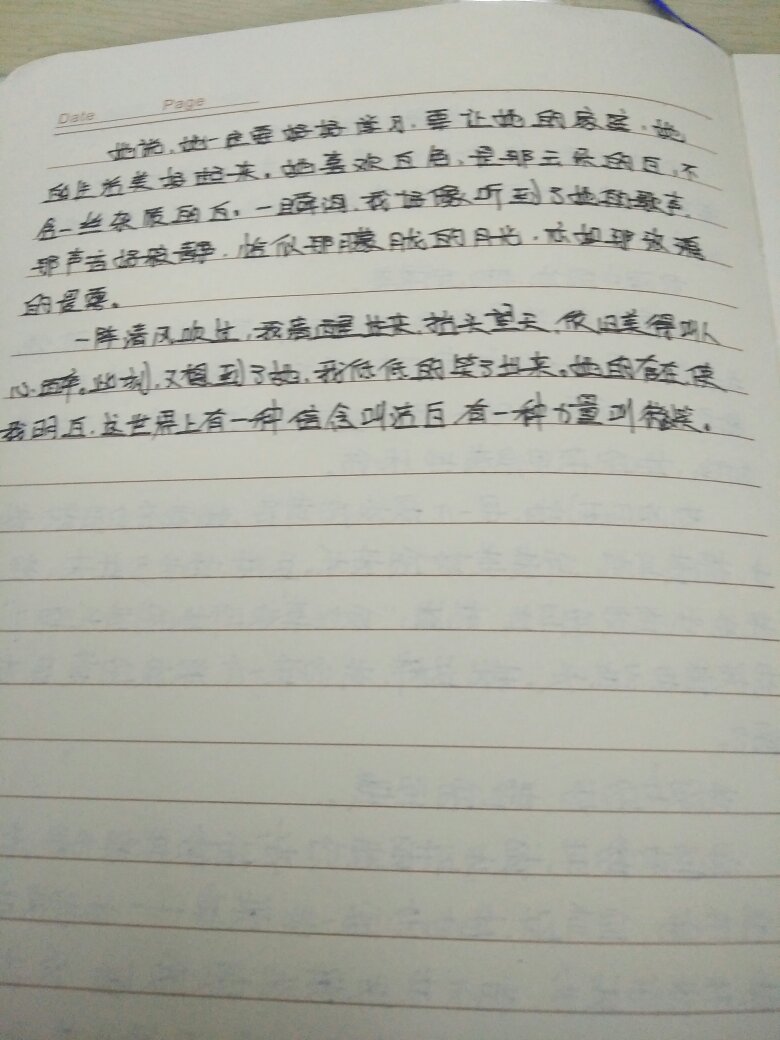 Date Page
她说,她一定要好好学习,要让她的家庭,她
的生活美好起来。她喜欢白色,是那云朵的白,不
含一丝杂质的白。一瞬间,我好像听到了她的歌声,
那声音好寂静,恰似那朦胧的月光,亦如那浓
的
一阵清风吹过,我清醒过来,抬头望天,依旧美得叫人
心醉。此刻,又想到了她,我低低的笑了出来。她的存在使
我明白,这世界上有一种信念叫洁白,有一种力量叫微笑。